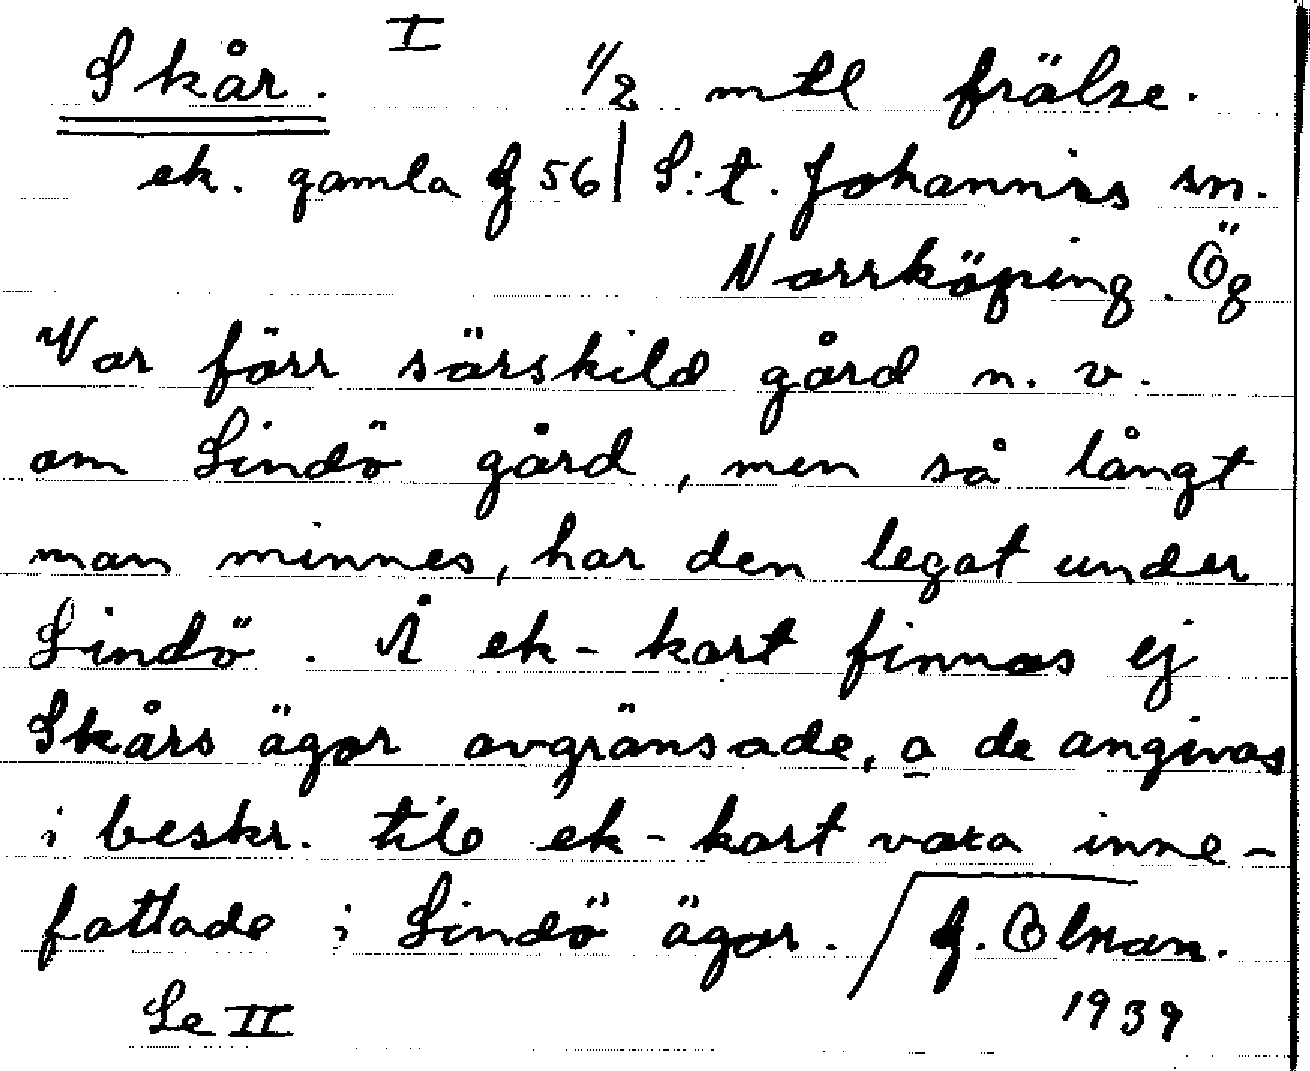 Skår. I 1/2 mtl frälse.
ek. gamla J 56 | S:t. Johannis sn.
Norrköping. Ög
Var förr särskild gård n. v.
om Lindö gård, men så långt
man minnes, har den legat under
Lindö. Å ek-kart finnas ej
Skårs ägor avgränsade, o de angivas
i beskr. till ek-kart vara inne-
fattade i Lindö ägor. J. Olnan.
Se II 1939